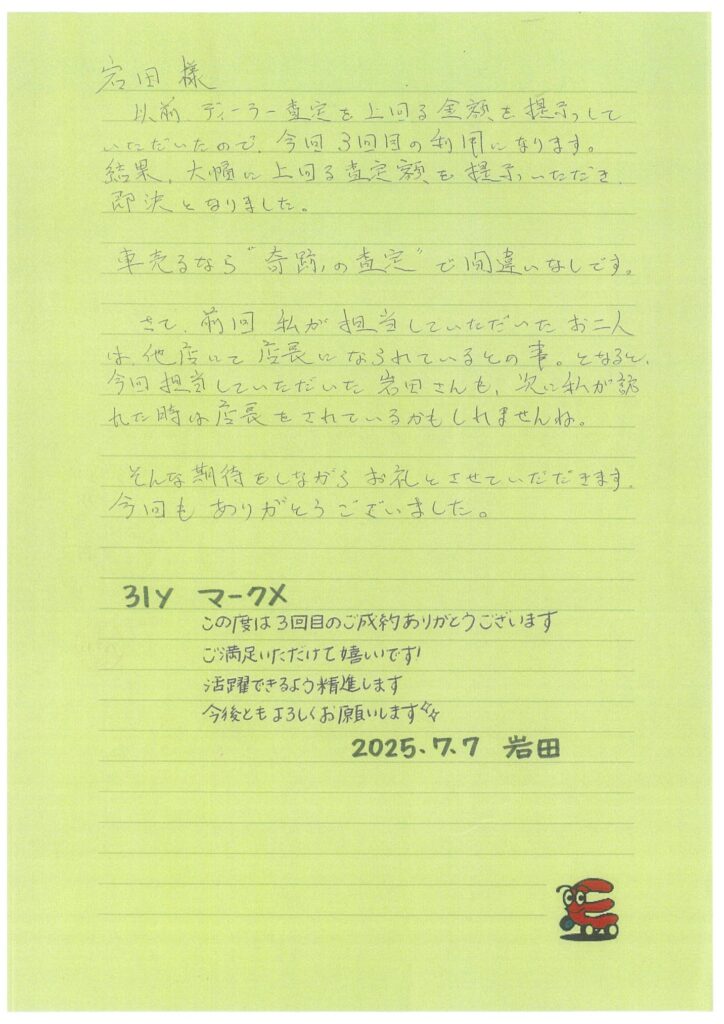 岩田 様
以前、ディーラー査定を上回る金額を提示して
いただいたので、今回、3回目の利用になります。
結果、大幅に上回る査定額を提示いただき、
即決となりました。
車売るなら"奇跡の査定"で間違いなしです。
さて、前回 私が担当していただいたお二人
は、他店にて店長になられているとの事。となると、
今回担当していただいた岩田さんも、次に私が訪
れた時は店長をされているかもしれませんね。
そんな期待をしながらお礼とさせていだだきます。
今回もありがとうございました。
31Y マークX
この度は3回目のご成約ありがとうございます
ご満足いただけて嬉しいです!
活躍できるよう精進します
今後ともよろしくお願いします
2025.7.7 岩田